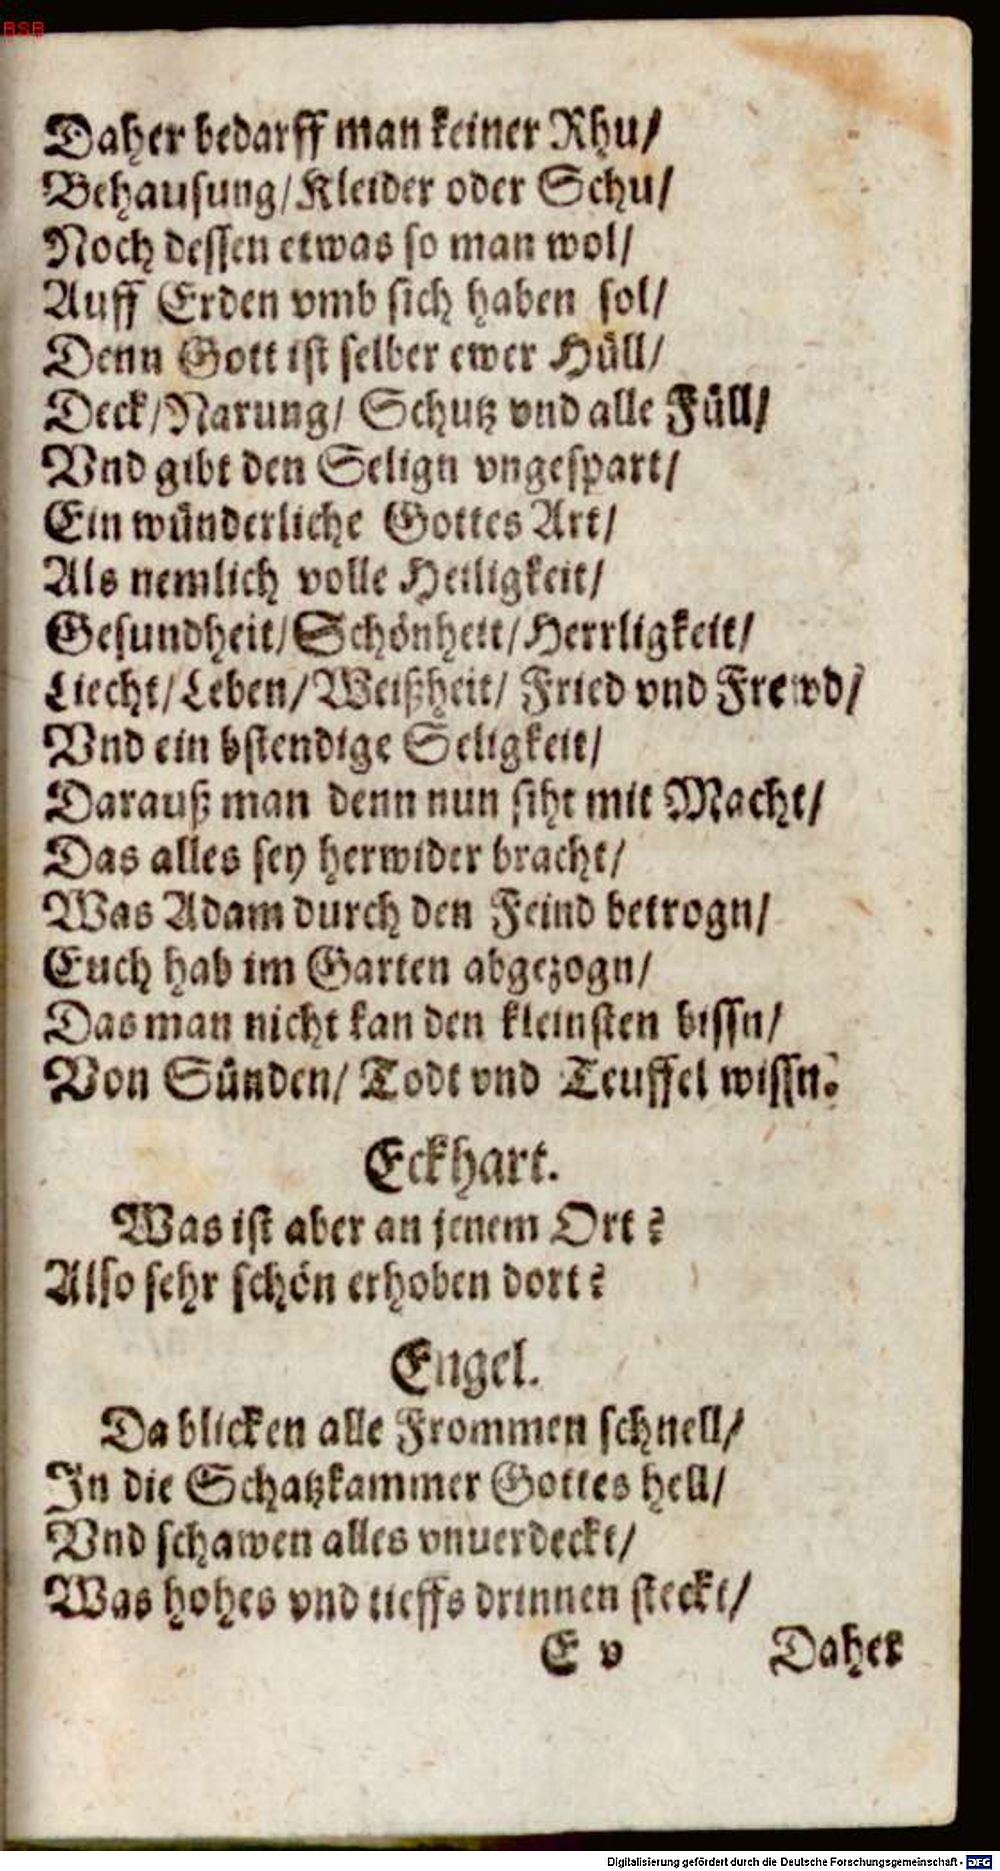 BSB
Daher bedarff man keiner Rhu/
Behausung/Kleider oder Schu/
Noch dessen etwas so man wol/
Auff Erden vmb sich haben sol/
Denn Gott ist selber ewer Hüll/
Deck/Narung/ Schutz vnd alle Füll/
Vnd gibt den Selign vngespart/
Ein wünderliche Gottes Art/
Als nemlich volle Heiligkeit/
Gesundheit/Schönheit/Herrligkeit/
Liecht/Leben/Weißheit/ Fried vnd Frewd/
Vnd ein bstendige Seligkeit/
Darauß man denn nun siht mit Macht/
Das alles sey herwider bracht/
Was Adam durch den Feind betrogn/
Euch hab im Garten abgezogn/
Das man nicht kan den kleinsten bissn/
Von Sünden/ Todt vnd Teuffel wissn.
Eckhart.
Was ist aber an jenem Ort?
Also sehr schön erhoben dort?
Engel.
Da blicken alle Frommen schnell/
In die Schatzkammer Gottes hell/
Vnd schawen alles vnuerdeckt/
Was hohes vnd tieffs drinnen steckt/
E v Daher
Digitalisierung gefördert durch die Deutsche Forschungsgemeinschaft - DFG